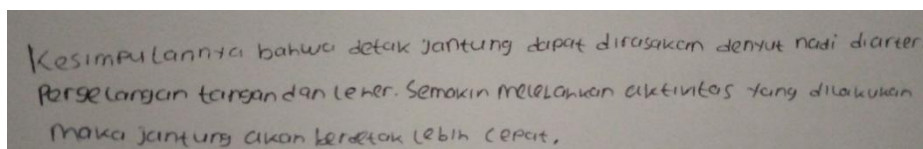 Kesimpulannya bahwa detak jantung dapat dirasakan denyut nadi diarter
Pergelangan tangan dan leher. Semakin melelahkan aktivitas yang dilakukan
maka jantung akan berdetak lebih cepat.